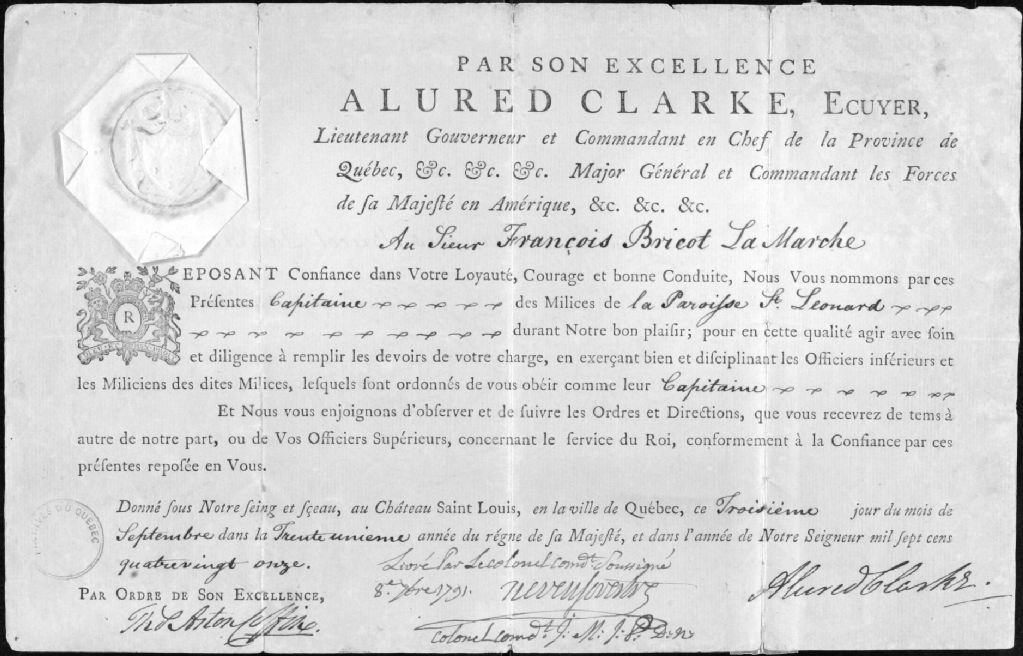 PAR SON EXCELLENCE
ALURED CLARKE, ECUYER,
Lieutenant Gouverneur et Commandant en Chef de la Province de
Québec, &c. &c. &c. Major Général et Commandant les Forces
de ſa Majeſté en Amérique, &c. &c. &c.
Au Sieur François Bricot La Marche
EPOSANT Confiance dans Votre Loyauté, Courage et bonne Conduite, Nous Vous nommons par ces
Préſentes Capitaine des Milices de la Paroiſſe St. Leonard
durant Notre bon plaiſir; pour en cette qualité agir avec ſoin
et diligence à remplir les devoirs de votre charge, en exerçant bien et diſciplinant les Officiers inférieurs et
les Miliciens des dites Milices, leſquels ſont ordonnés de vous obéir comme leur Capitaine
Et Nous vous enjoignons d'obſerver et de ſuivre les Ordres et Directions, que vous recevrez de tems à
autre de notre part, ou de Vos Officiers Supérieurs, concernant le ſervice du Roi, conformement à la Confiance par ces
préſentes reposée en Vous.
Donné ſous Notre ſeing et ſçeau, au Château Saint Louis, en la ville de Québec, ce Troisiéme jour du mois de
Septembre dans la Trente unieme année du régne de ſa Majeſté, et dans l'année de Notre Seigneur mil ſept cens
quatrevingt onze. Livré Par Le colonel comdt. Soussigné
PAR ORDRE DE SON EXCELLENCE, 8e. 7bre 1791. Alured Clarke
Thos Aston Coffin. colonel comdt.
R
DU QUÉBEC